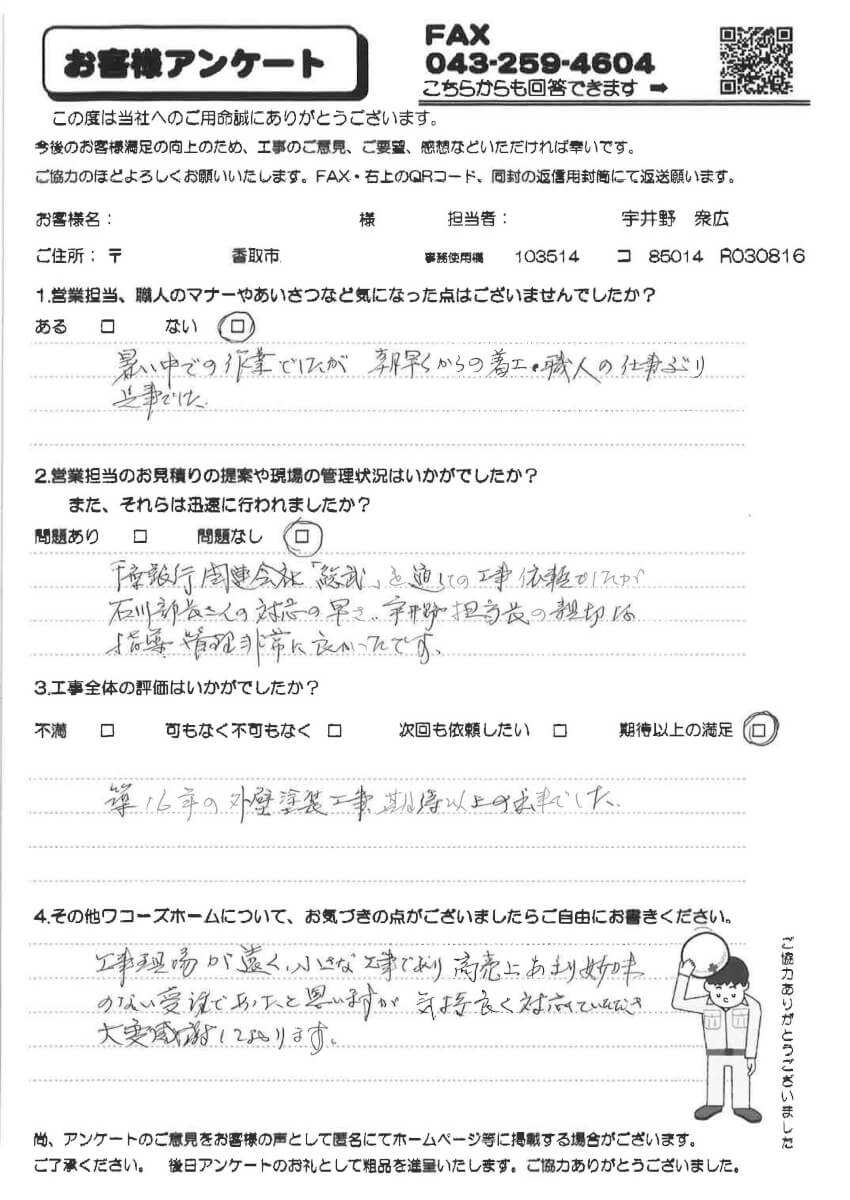 お客様アンケート
FAX
043-259-4604
こちらからも回答できます ➡
この度は当社へのご用命誠にありがとうございます。
今後のお客様満足の向上のため、工事のご意見、ご要望、感想などいただければ幸いです。
ご協力のほどよろしくお願いいたします。FAX・右上のQRコード、同封の返信用封筒にて返送願います。
お客様名： 様 担当者： 宇井野 衆広
ご住所：〒 香取市 事務使用欄 103514 コ 85014 R030816
1.営業担当、職人のマナーやあいさつなど気になった点はございませんでしたか？
ある □ ない □
暑い中での作業でしたが 朝早くからの着工・職人の仕事ぶり
見事でした。
2.営業担当のお見積りの提案や現場の管理状況はいかがでしたか？
また、それらは迅速に行われましたか？
問題あり □ 問題なし □
千葉銀行関連会社「総武」を通しての工事依頼でしたが
石川部長さんの対応の早さ、宇井野担当長の親切な
指導、管理非常に良かったです。
3.工事全体の評価はいかがでしたか？
不満 □ 可もなく不可もなく □ 次回も依頼したい □ 期待以上の満足 □
築16年の外壁塗装工事、期待以上の出来でした。
4.その他ワコーズホームについて、お気づきの点がございましたらご自由にお書きください。
工事現場が遠く、小さな工事であり 高売上あまり妙味
のない受注であったと思いますが 気持良く対応していただき
大変感謝しております。
ご協力ありがとうございました
尚、アンケートのご意見をお客様の声として匿名にてホームページ等に掲載する場合がございます。
ご了承ください。 後日アンケートのお礼として粗品を進呈いたします。ご協力ありがとうございました。